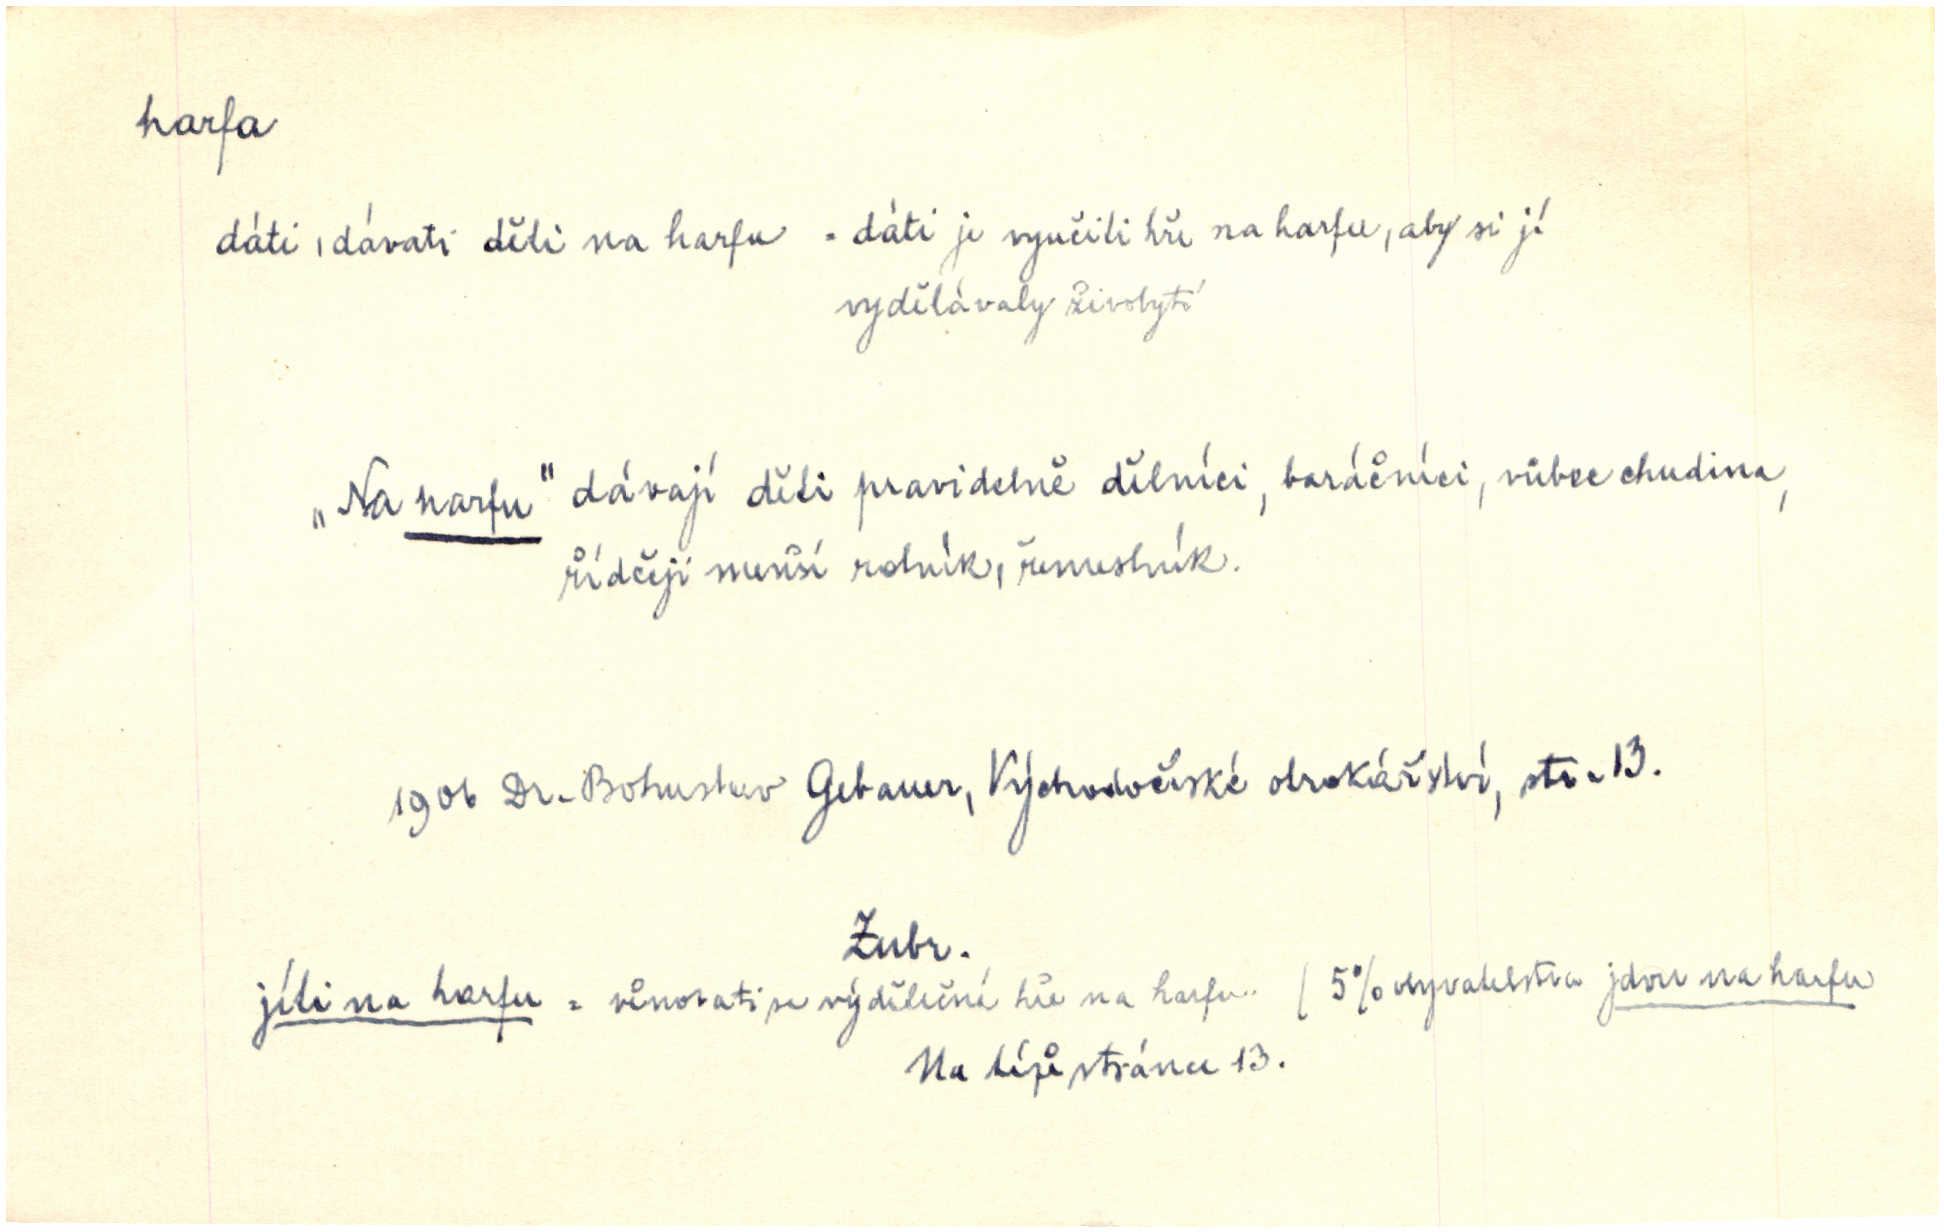 harfa
dáti, dávati děti na harfu = dáti je vyučiti hře na harfu, aby si jí
vydělávaly živobytí
„Na harfu" dávají děti pravidelně dělníci, baráčníci, vůbec chudina,
řidčeji menší rolník, řemeslník.
1906 Dr. Bohuslav Gebauer, Východočeské obrokářství, str. 13.
Zubr.
jíti na harfu = věnovati se výdělečné hře na harfu. (5% obyvatelstva jdou na harfu
Na téže stránce 13.